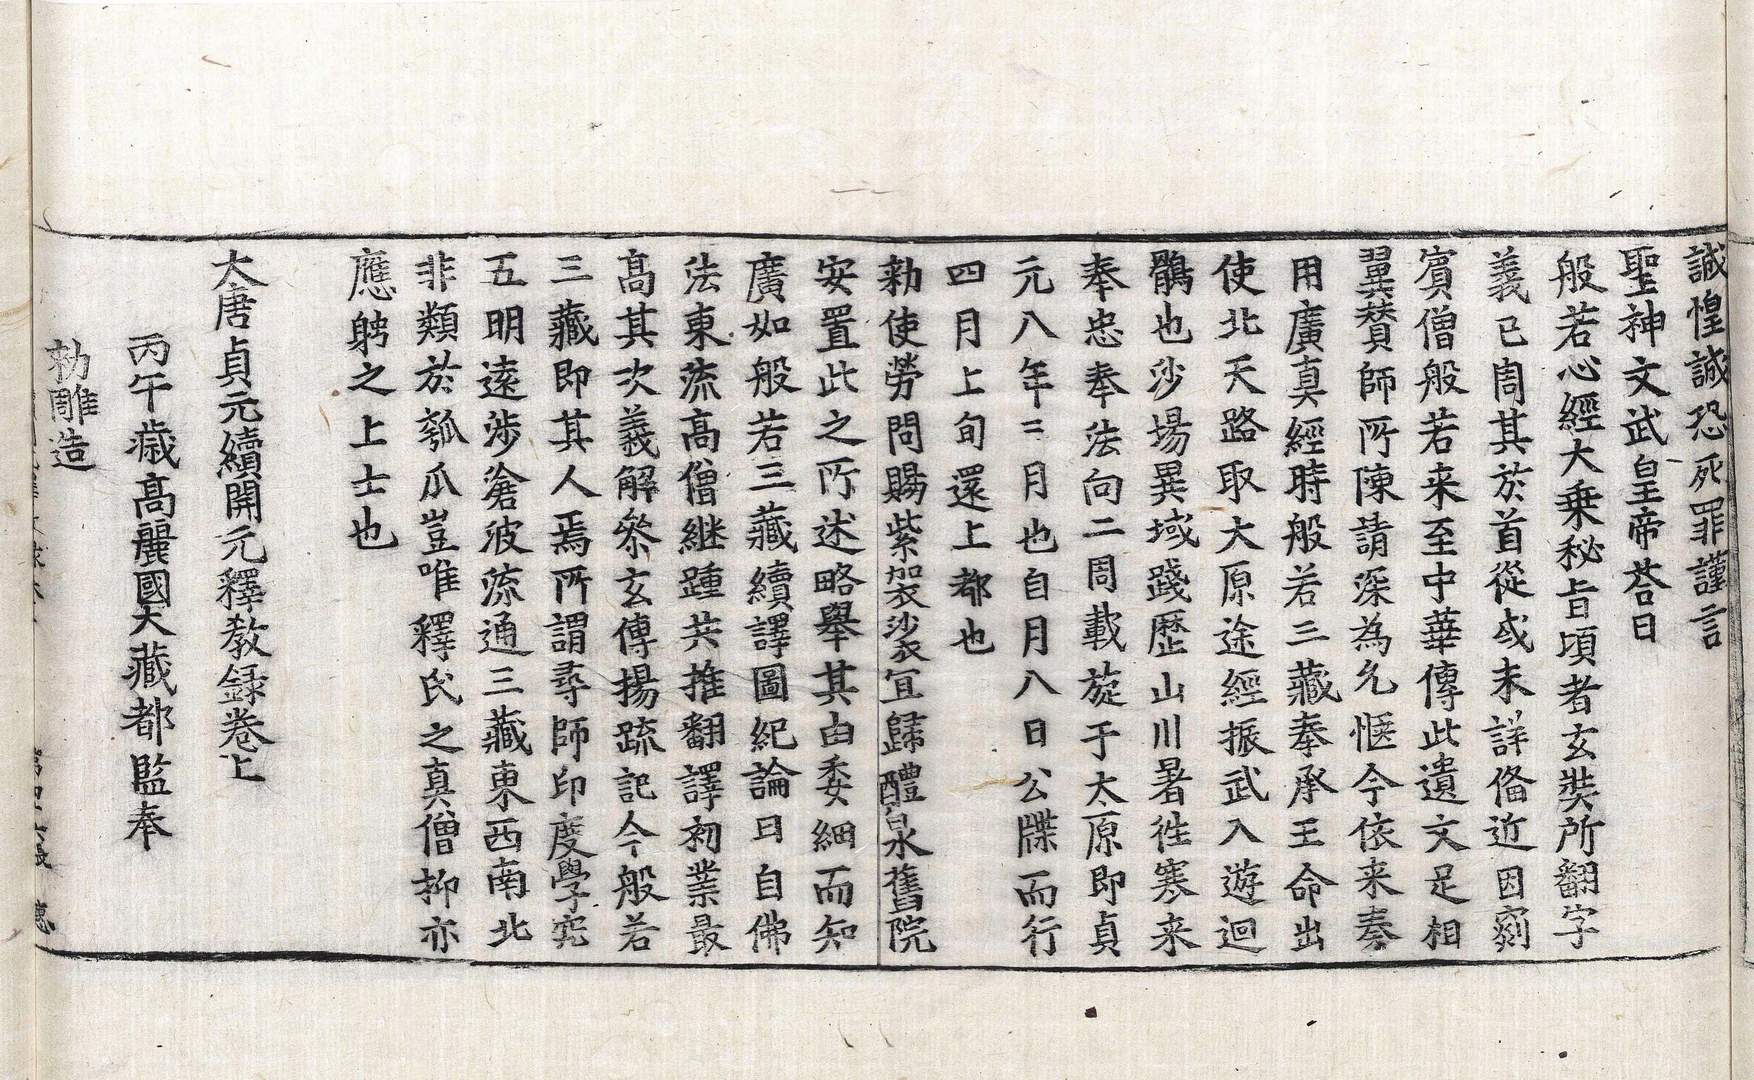 誠惶誠恐死罪謹言
聖神文武皇帝荅曰
般若心經大乗秘旨頃者玄奘所翻字
義已周其於首從或未詳俻近因罽
賓僧般若来至中華傳此遺文足相
翼賛師所陳請深為允惬今依来奏
用廣真經時般若三藏奉承王命出
使北天路取大原途經振武入遊迴
鶻也沙場異域踐歴山川暑徃寒来
奉忠奉法向二周載旋于太原即貞
元八年三月也自月八日公牒而行
四月上旬還上都也
勑使勞問賜紫袈裟宜歸醴泉舊院
安置此之所述略舉其由委細而知
廣如般若三藏續譯圖紀論曰自佛
法東流髙僧継踵共推翻譯初業最
髙其次義解叅玄傳揚疏記今般若
三藏即其人焉所謂尋師印度學究
五明遠涉滄波流通三藏東西南北
非類於瓠瓜豈唯釋氏之真僧抑亦
應躬之上士也
大唐貞元續開元釋教録卷上
丙午歳髙麗國大藏都監奉
勑雕造